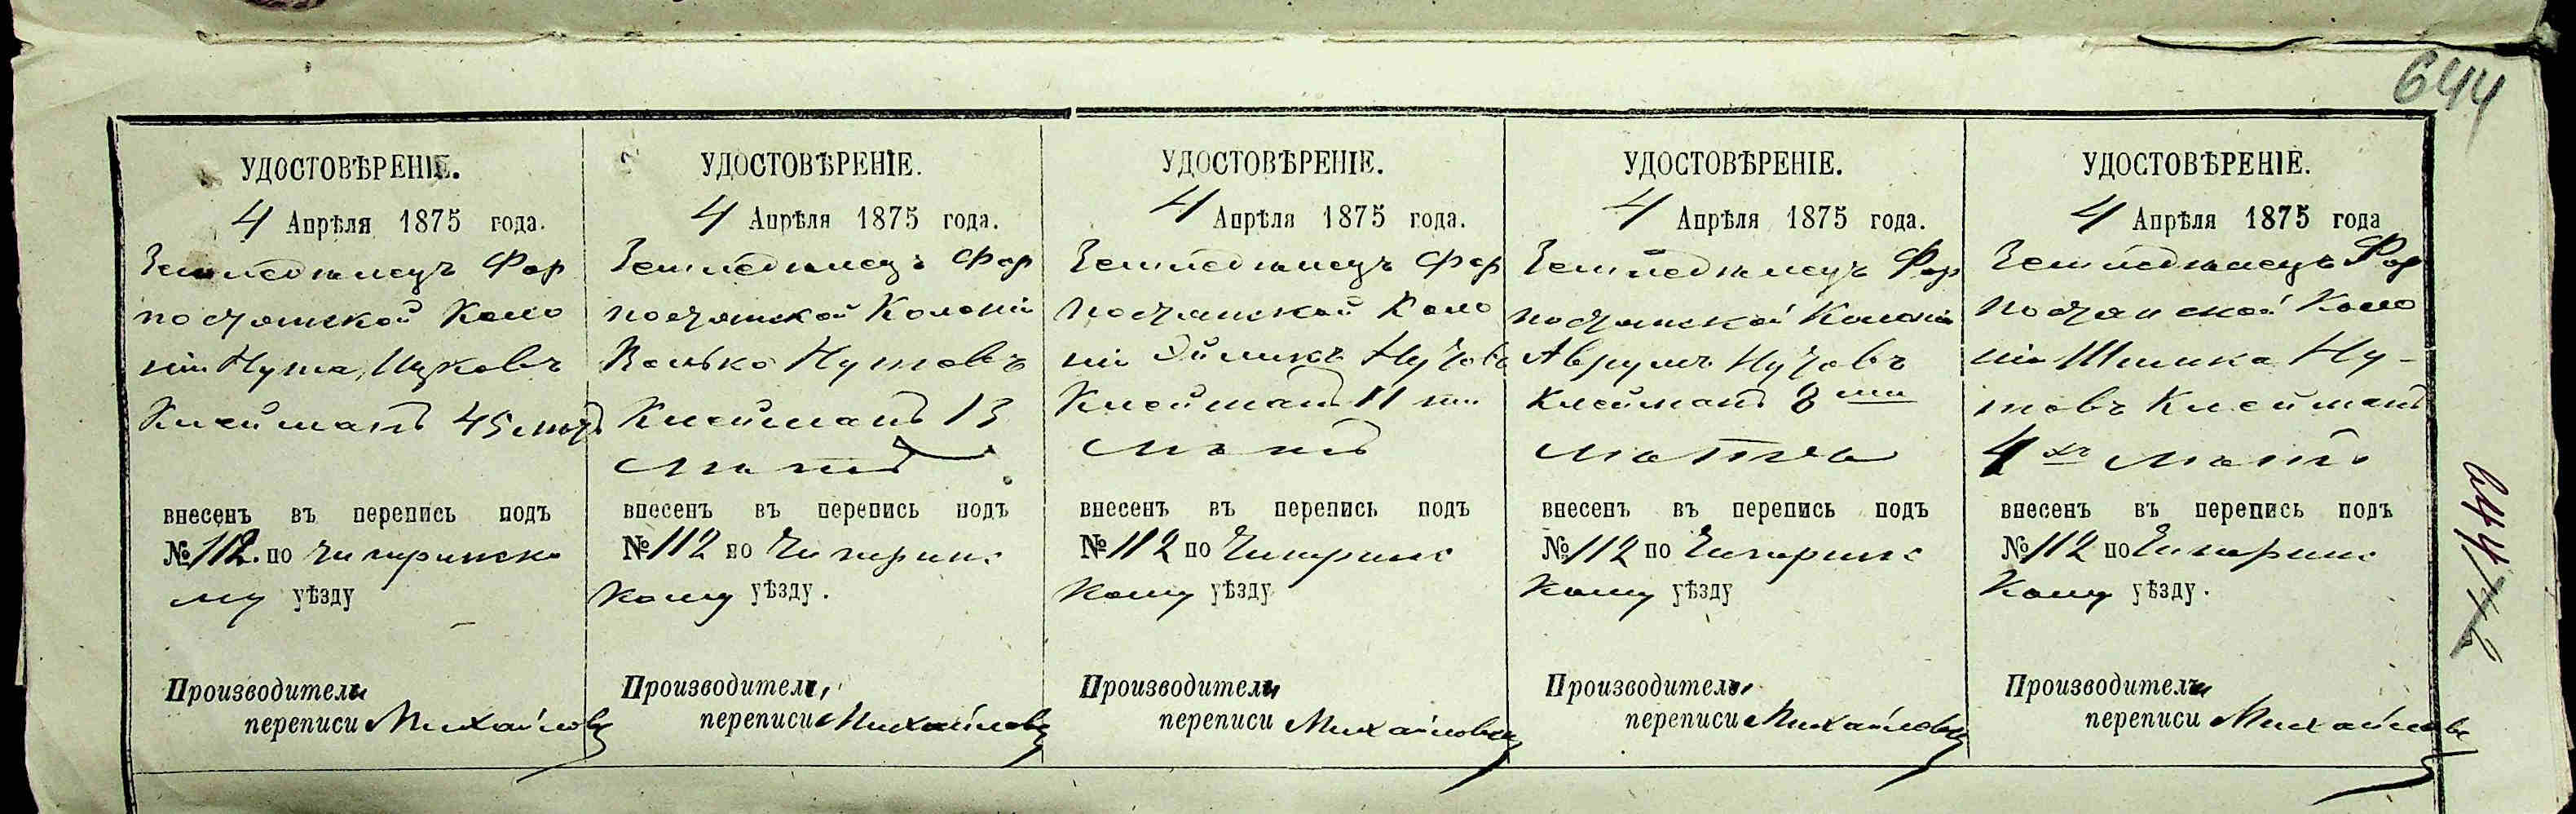 644
УДОСТОВѢРЕНІЕ.
4 Апрѣля 1875 года.
Земледѣлецъ Фор
постянской Коло
ніи Нута Ицковъ
Клейманъ 45 лѣтъ
внесенъ въ перепись подъ
№ 112. по Чигиринско
му уѣзду
Производитель
переписи Михайловъ
УДОСТОВѢРЕНІЕ.
4 Апрѣля 1875 года.
Земледѣлецъ Фор
постянской Колоніи
Волько Нутовъ
Клейманъ 13
лѣтъ
внесенъ въ перепись подъ
№ 112 по Чигирин
кому уѣзду.
Производитель
переписи Михайловъ
УДОСТОВѢРЕНІЕ.
4 Апрѣля 1875 года.
Земледѣлецъ Фор
постянской Коло
ніи Нутовъ
Клейманъ 11 ти
лѣтъ
внесенъ въ перепись подъ
№ 112 по Чигиринс
кому уѣзду
Производитель
переписи Михайловъ
УДОСТОВѢРЕНІЕ.
4 Апрѣля 1875 года.
Земледѣлецъ Фор
постянской Колоніи
Аврумъ Нутовъ
Клейманъ 8 ми
лѣтъ
внесенъ въ перепись подъ
№ 112 по Чигиринс
кому уѣзду
Производитель
переписи Михайловъ
УДОСТОВѢРЕНІЕ.
4 Апрѣля 1875 года
Земледѣлецъ Фор
постянской Коло
ніи Шмика Ну-
товъ Клейманъ
4 хъ лѣтъ
внесенъ въ перепись подъ
№ 112 по Чигиринс
кому уѣзду.
Производитель
переписи Михайловъ
644